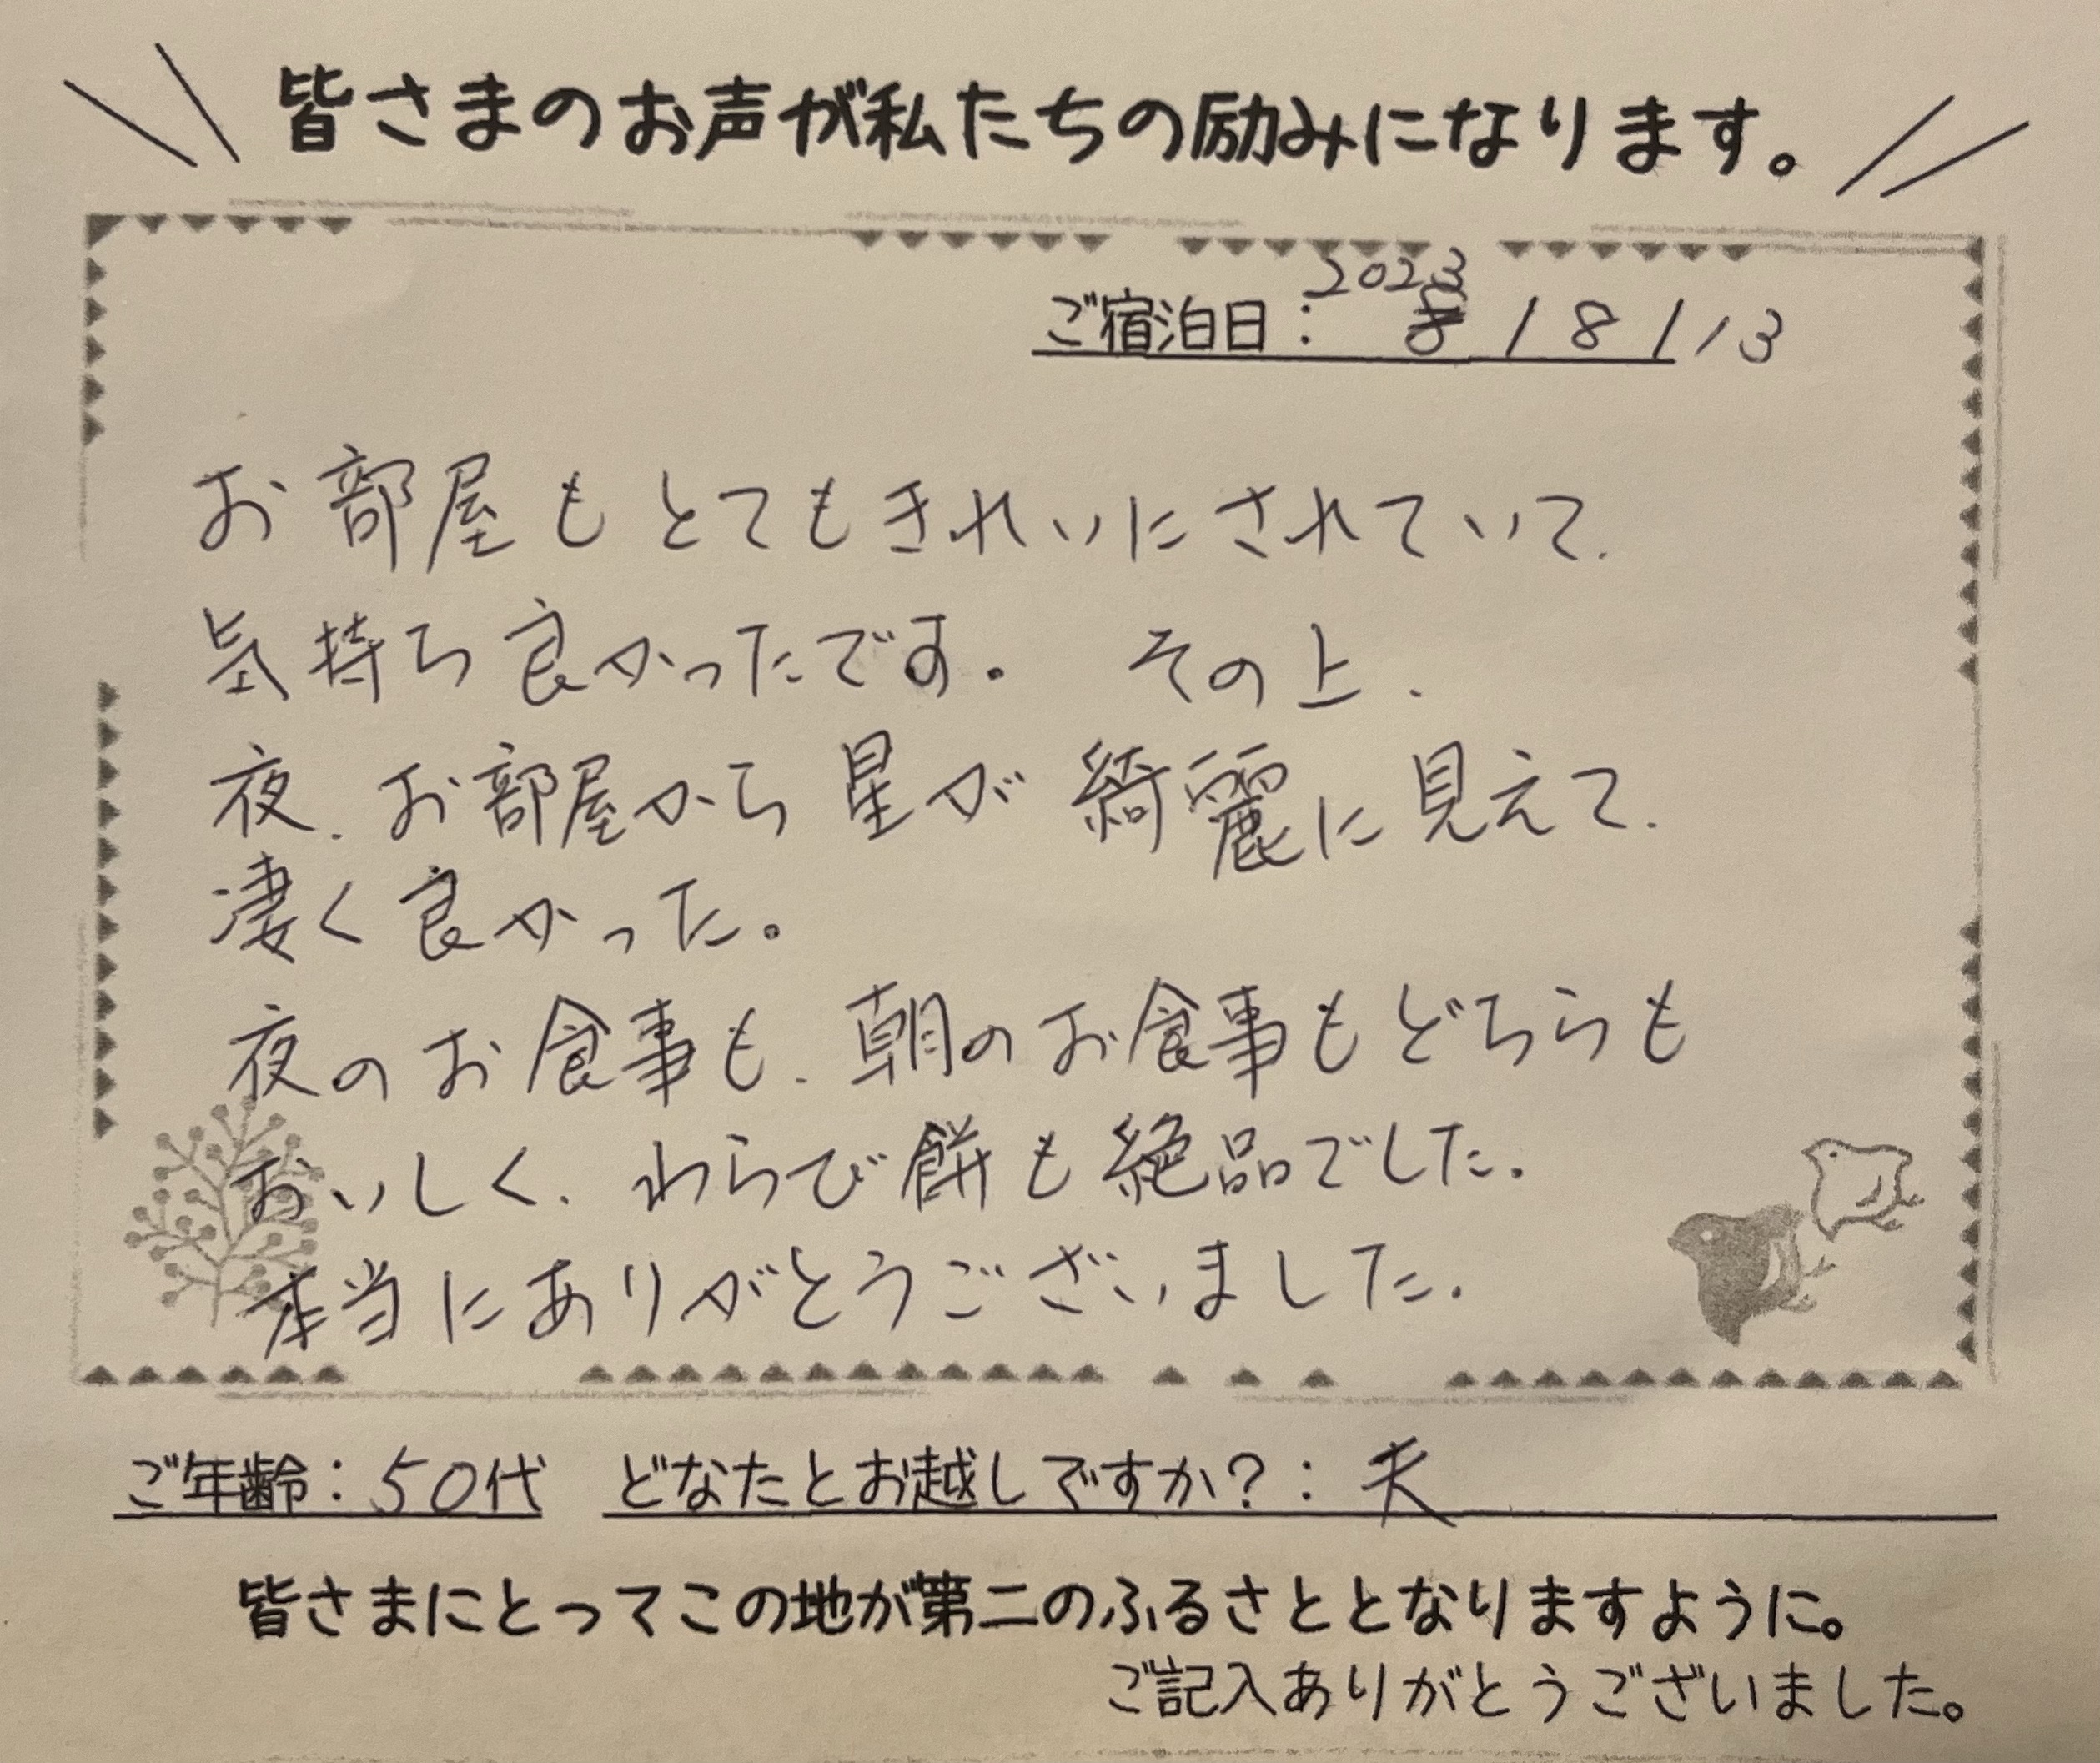 皆さまのお声が私たちの励みになります。
ご宿泊日：2023/8/13
お部屋もとてもきれいにされていて、
気持ち良かったです。その上、
夜、お部屋から星が綺麗に見えて、
凄く良かった。
夜のお食事も、朝のお食事もどちらも
おいしく、わらび餅も絶品でした。
本当にありがとうございました。
ご年齢：50代 どなたとお越しですか？：夫
皆さまにとってこの地が第二のふるさととなりますように。
ご記入ありがとうございました。